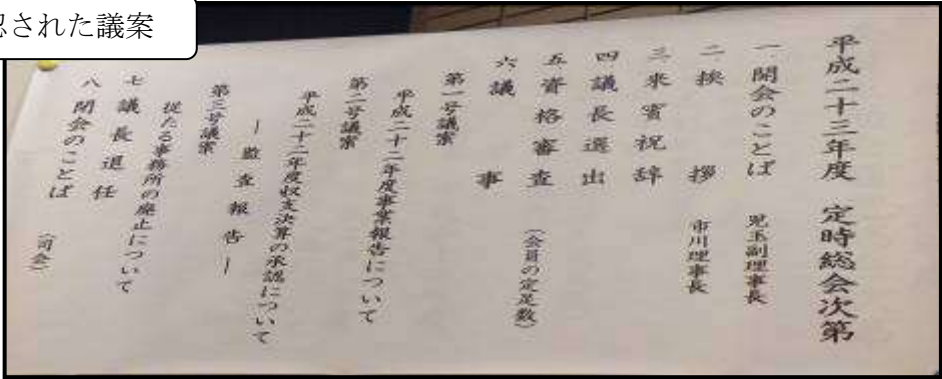 認された議案
平成二十三年度 定時総会次第
一 開会のことば 児玉副理事長
二 挨拶 市川理事長
三 来賓祝辞
四 議長選出
五 資格審査 (会員の定足数)
六 議事
第一号議案
平成二十二年度事業報告について
第二号議案
平成二十二年度収支決算の承認について
ー監査報告ー
第三号議案
従たる事務所の廃止について
七 議長退任
八 閉会のことば (司会)